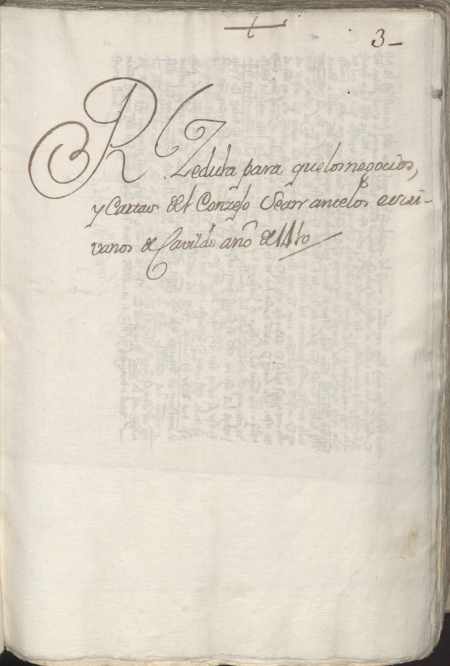 3-
R. Zedula para que los negocios,
y Cartas del Conzejo Sean ante los escri-
vanos de Cavildo año de